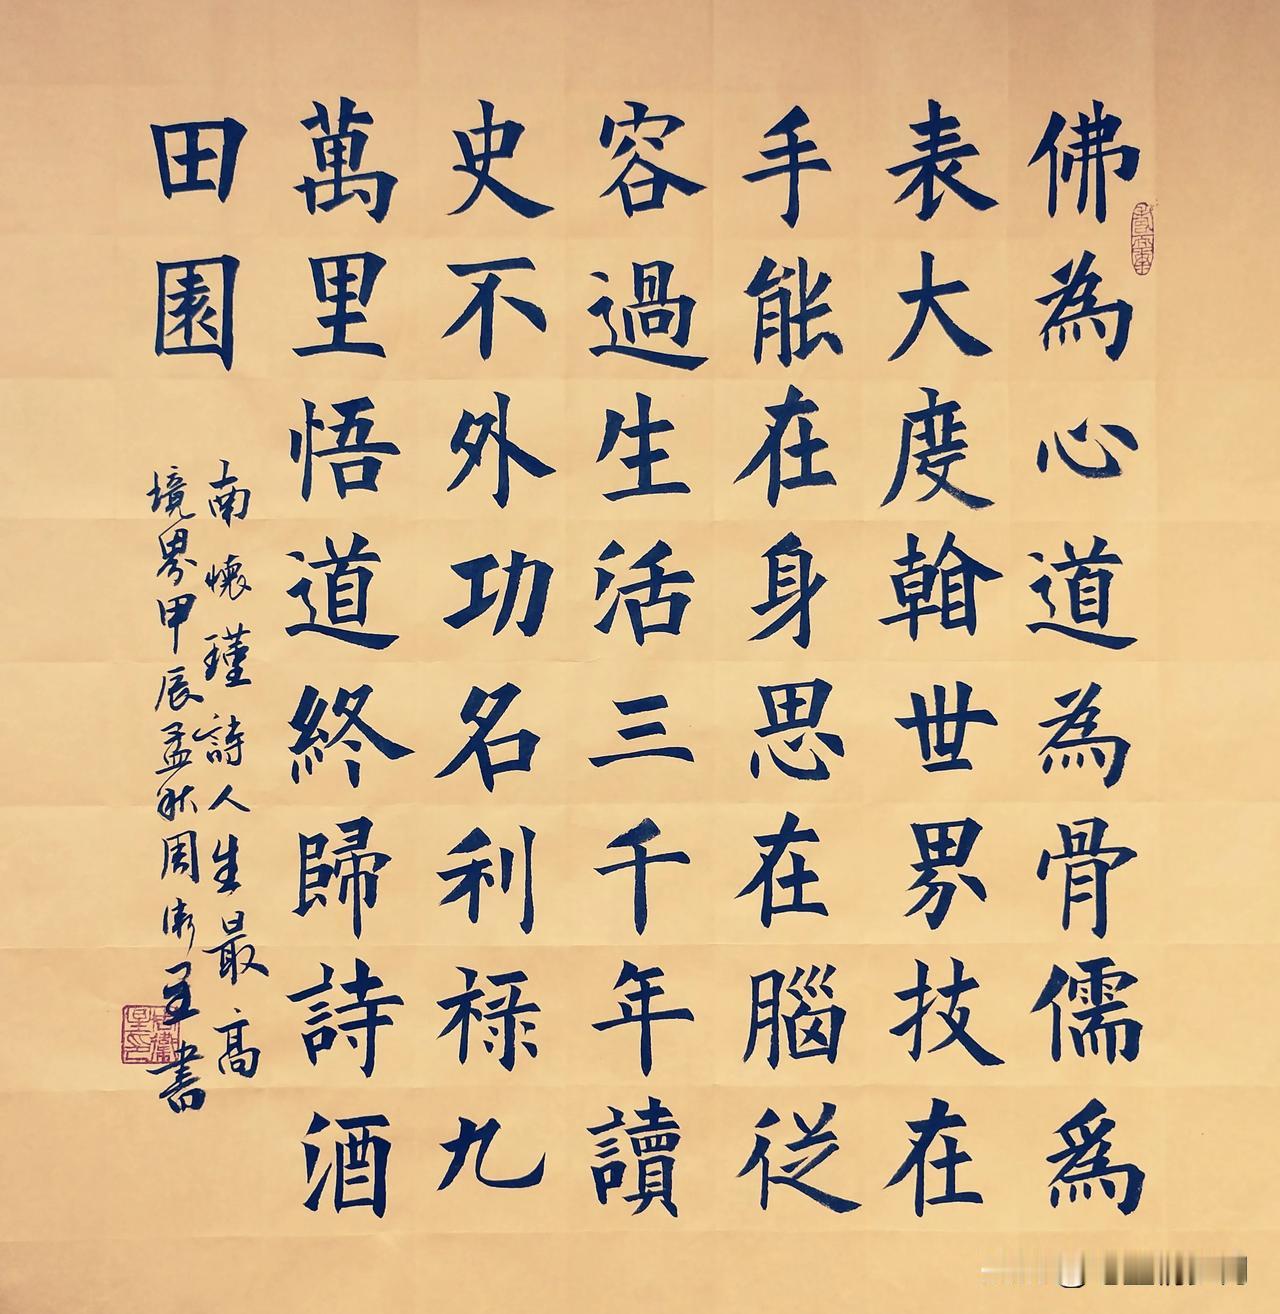 佛為心道為骨儒為
表大度翰世界技在
手能在身思在腦從
容過生活三千年讀
史不外功名利祿九
萬里悟道終歸詩酒
田園
南懷瑾詩人生最高
境界甲辰孟秋周衛星書